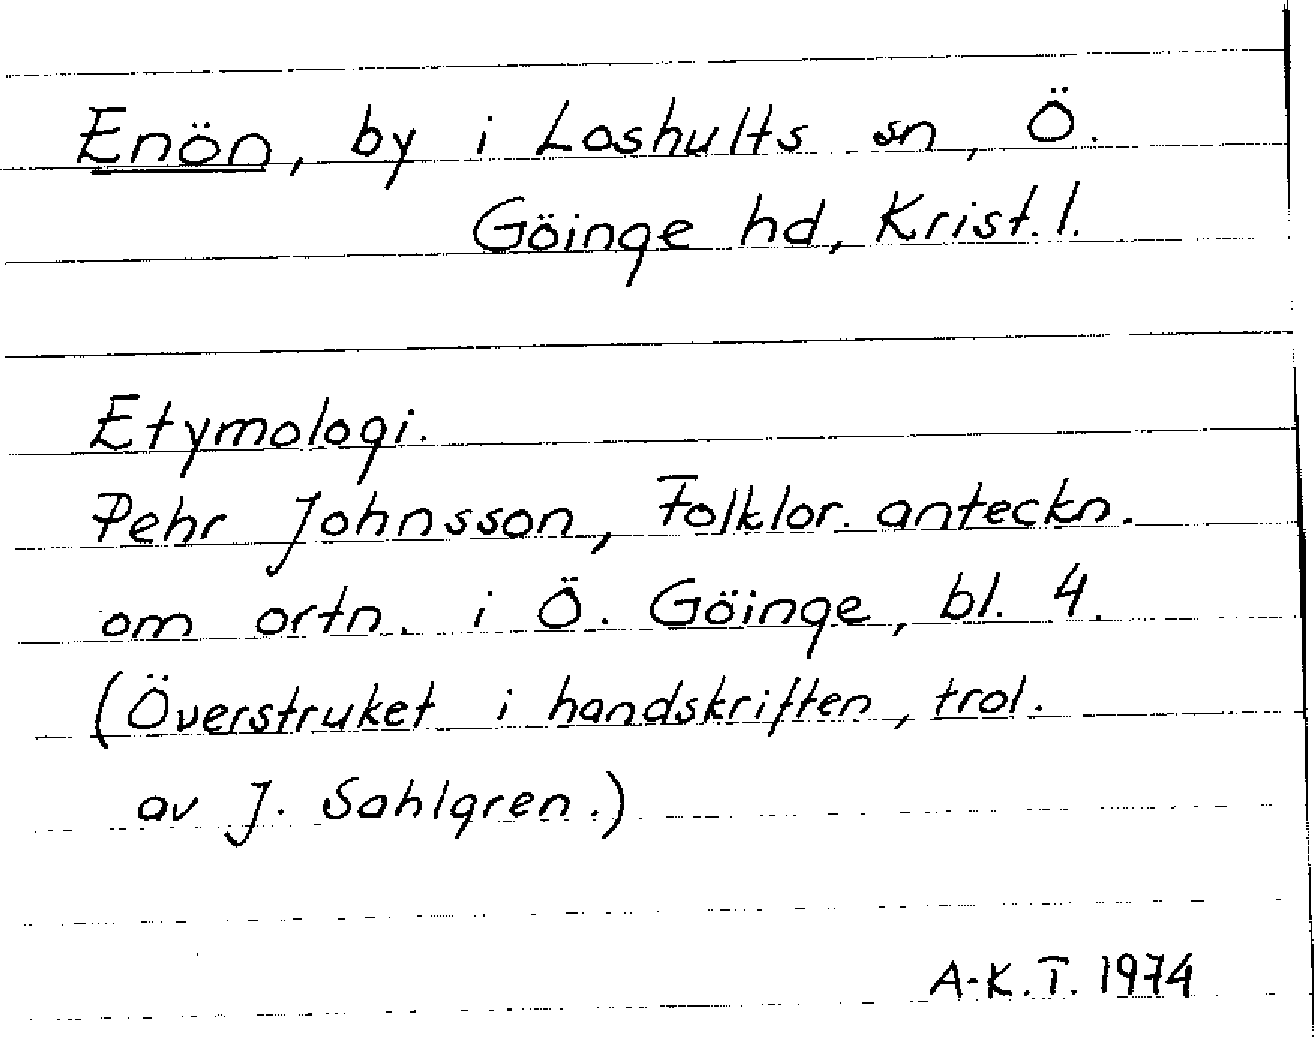 Enön, by i Loshults sn, Ö.
Göinge hd, Krist. l.
Etymologi.
Pehr Johnsson, Folklor. anteckn.
om ortn. i Ö. Göinge, bl. 4.
(Överstruket i handskriften, trol.
av J. Sahlgren.)
A-K.T. 1974